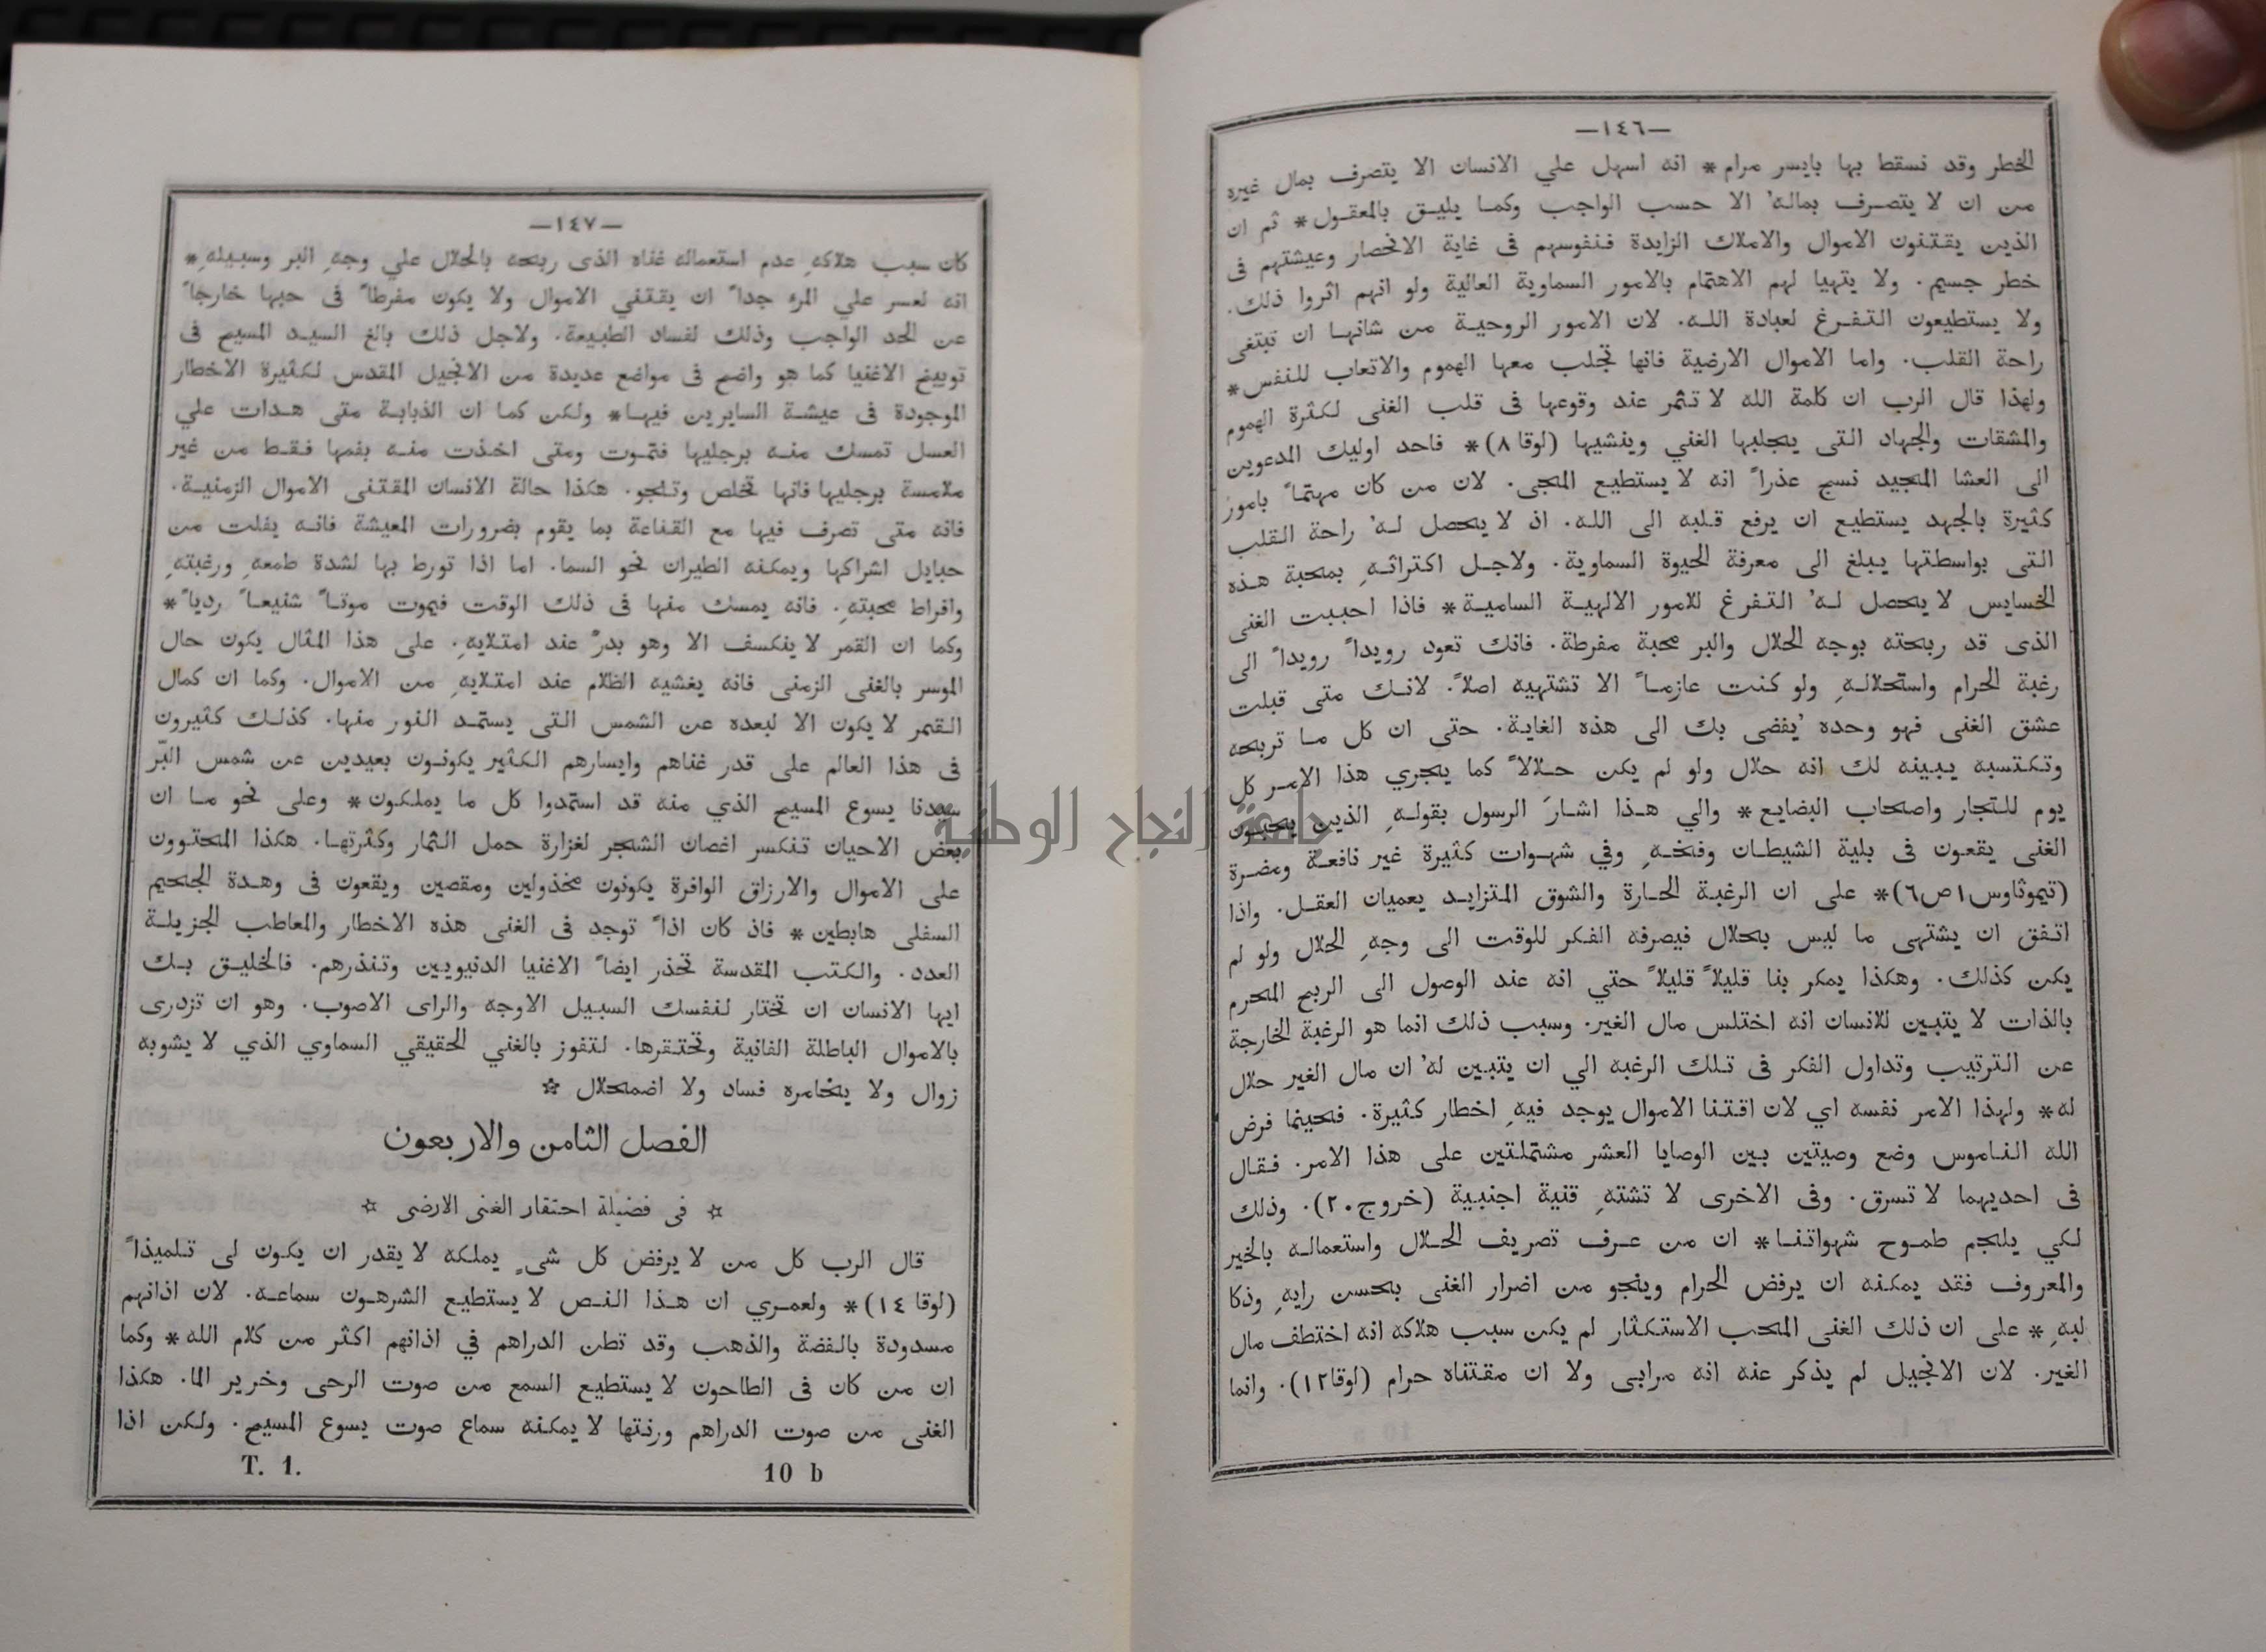 —١٤٦—
الخطر وقد نسقط بها بايسر مرام* انه اسهل علي الانسان الا يتصرف بمال غيره
من ان لا يتصرف بماله' الا حسب الواجب وكما يليق بالمعقول* ثم ان
الذين يقتنون الاموال والاملاك الزايدة فنفوسهم فى غاية الانحصار وعيشتهم فى
خطر جسيم. ولا يتهيا لهم الاهتمام بالامور السماوية العالية ولو انهم اثروا ذلك.
ولا يستطيعون التفرغ لعبادة الله. لان الامور الروحية من شانها ان تبتغى
راحة القلب. واما الاموال الارضية فانها تجلب معها الهموم والاتعاب للنفس*
ولهذا قال الرب ان كلمة الله لا تثمر عند وقوعها فى قلب الغنى لكثرة الهموم
والمشقات والجهاد التى يجلبها الغني وينشيها (لوقا ٨)* فاحد اوليك المدعوين
الى العشا المجيد نسج عذراً انه لا يستطيع المجى. لان من كان مهتماً بامور
كثيرة بالجهد يستطيع ان يرفع قلبه الى الله. اذ لا يحصل له' راحة القلب
التى بواسطتها يبلغ الى معرفة الحيوة السماوية. ولاجل اكتراثهِ بمحبة هذه
الخسايس لا يحصل له' التفرغ للامور الالهية السامية* فاذا احببت الغنى
الذى قد ربحته بوجه الحلال والبر محبة مفرطة. فانك تعود رويداً رويداً الى
رغبة الحرام واستحلالهِ ولو كنت عازماً الا تشتهيه اصلاً. لانك متى قبلت
عشق الغنى فهو وحده يُفضى بك الى هذه الغاية. حتى ان كل ما تربحه
وتكتسبه يبينه لك انه حلال ولو لم يكن حلالاً كما يجري هذا الامر كل
يوم للتجار واصحاب البضايع* والي هذا اشارَ الرسول بقولهِ الذين يحبون
الغنى يقعون فى بلية الشيطان وفخهِ وفي شهوات كثيرة غير نافعة ومضرة
(تيموثاوس١ ص٦)* على ان الرغبة الحارة والشوق المتزايد يعميان العقل. واذا
اتفق ان يشتهى ما ليس بحلال فيصرفه الفكر للوقت الى وجهِ الحلال ولو لم
يكن كذلك. وهكذا يمكر بنا قليلاً قليلاً حتي انه عند الوصول الى الربح المحرم
بالذات لا يتبين للانسان انه اختلس مال الغير. وسبب ذلك انما هو الرغبة الخارجة
عن الترتيب وتداول الفكر فى تلك الرغبه الي ان يتبين له' ان مال الغير حلال
له* ولهذا الامر نفسه اي لان اقتنا الاموال يوجد فيهِ اخطار كثيرة. فحينما فرض
الله الناموس وضع وصيتين بين الوصايا العشر مشتملتين على هذا الامر. فقال
فى احديهما لا تسرق. وفى الاخرى لا تشتهِ قنية اجنبية (خروج٢٠). وذلك
لكي يلجم طموح شهواتنا* ان من عرف تصريف الحلال واستعماله بالخير
والمعروف فقد يمكنه ان يرفض الحرام وينجو من اضرار الغنى بحسن رايهِ وذكا
لبهِ* على ان ذلك الغنى المحب الاستكثار لم يكن سبب هلاكه انه اختطف مال
الغير. لان الانجيل لم يذكر عنه انه مرابى ولا ان مقتناه حرام (لوقا١٢). وانما
—١٤٧—
كان سبب هلاكهِ عدم استعماله غناه الذى ربحه بالحلال علي وجهِ البر وسبيلهِ*
انه لعسر علي المرء جداً ان يقتني الاموال ولا يكون مفرطاً فى حبها خارجاً
عن الحد الواجب وذلك لفساد الطبيعة. ولاجل ذلك بالغ السيد المسيح فى
توبيخ الاغنيا كما هو واضح فى مواضع عديدة من الانجيل المقدس لكثيرة الاخطار
الموجودة فى عيشة السايرين فيها* ولكن كما ان الذبابة متى هدات علي
العسل تمسك منه برجليها فتموت ومتى اخذت منه بفمها فقط من غير
ملامسة برجليها فانها تخلص وتنجو. هكذا حالة الانسان المقتنى الاموال الزمنية.
فانه متى تصرف فيها مع القناعة بما يقوم بضرورات المعيشة فانه يفلت من
حبايل اشراكها ويمكنه الطيران نحو السما. اما اذا تورط بها لشدة طمعهِ ورغبتهِ
وافراط محبتهِ. فانه يمسك منها فى ذلك الوقت فيموت موتاً شنيعاً ردياً*
وكما ان القمر لا ينكسف الا وهو بدرٌ عند امتلايهِ. على هذا المثال يكون حال
الموسر بالغنى الزمنى فانه يغشيه الظلام عند امتلايهِ من الاموال. وكما ان كمال
القمر لا يكون الا لبعده عن الشمس التى يستمد النور منها. كذلك كثيرون
فى هذا العالم على قدر غناهم وايسارهم الكثير يكونون بعيدين عن شمس البّر
سيدنا يسوع المسيح الذي منه قد استمدوا كل ما يملكون* وعلى نحو ما ان
بعض الاحيان تنكسر اغصان الشجر لغزارة حمل الثمار وكثرتها. هكذا المحتوون
على الاموال والارزاق الوافرة يكونون مخذولين ومقصين ويقعون فى وهدة الجحيم
السفلى هابطين* فاذ كان اذاً توجد فى الغنى هذه الاخطار والمعاطب الجزيلة
العدد. والكتب المقدسة تحذر ايضاً الاغنيا الدنيويين وتنذرهم. فالخليق بك
ايها الانسان ان تختار لنفسك السبيل الاوجه والراى الاصوب. وهو ان تزدرى
بالاموال الباطلة الفانية وتحتقرها. لتفوز بالغني الحقيقي السماوي الذي لا يشوبه
زوال ولا يخامره فساد ولا اضمحلال ☆
الفصل الثامن والاربعون
☆ فى فضيلة احتقار الغنى الارضى ☆
قال الرب كل من لا يرفض كل شىٍ يملكه لا يقدر ان يكون لى تلميذاً
(لوقا ١٤)* ولعمري ان هذا النص لا يستطيع الشرهون سماعه. لان اذانهم
مسدودة بالفضة والذهب وقد تطن الدراهم في اذانهم اكثر من كلام الله* وكما
ان من كان فى الطاحون لا يستطيع السمع من صوت الرحى وخرير الما. هكذا
الغنى من صوت الدراهم ورنتها لا يمكنه سماع صوت يسوع المسيح. ولكن اذا
T. 1. 10 b
جامعة النجاح الوطنية